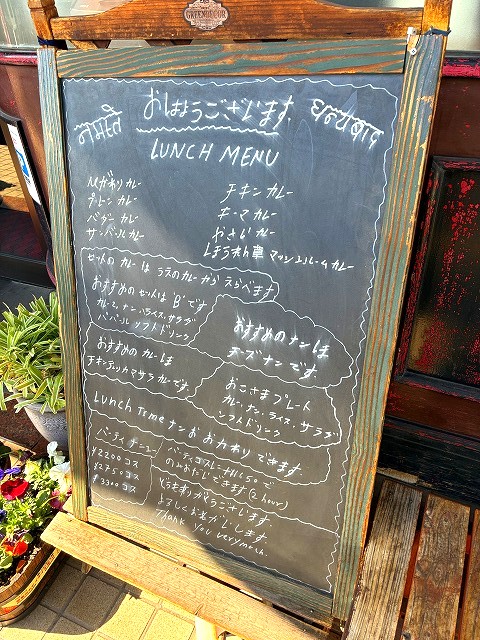 GREENDECOR
नमस्ते おはようございます धन्यवाद
LUNCH MENU
日がわりカレー
プレーンカレー
バターカレー
サンバルカレー
チキンカレー
キーマカレー
やさいカレー
ほうれん草マッシュルームカレー
セットのカレーは うえのカレーからえらべます
おすすめのセットは B'です
カレー2、ナン、ライス、サラダ
パパール ソフトドリンク
おすすめのナンは
チーズナンです
おすすめのカレーは
チキンティッカマサラカレーです
おこさまプレート
カレー、ナン、ライス、サラダ
ソフトドリンク
Lunch Time ナンおおかわりできます
パーティメニュー
¥2200コス
¥2750コス
¥3300コス
のみおだいできます(2 hour)
よろしくおねがいします。
Thank You very much.